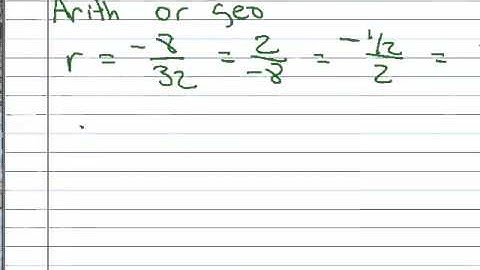 Arith or geo
r = -8/32 = 2/-8 = -1/2/2 =